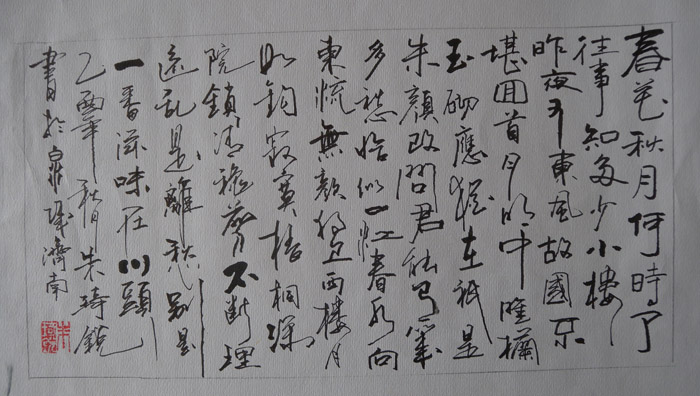 春花秋月何時了
往事知多少小樓
昨夜又東風故國不
堪回首月明中雕欄
玉砌應猶在祇是
朱顏改問君能有幾
多愁恰似一江春水向
東流無顏獨上西樓月
如鉤寂寞梧桐深
院鎖清秋剪不斷理
還亂是離愁別是
一番滋味在心頭
乙酉年秋月朱琦銳
書於泉城濟南